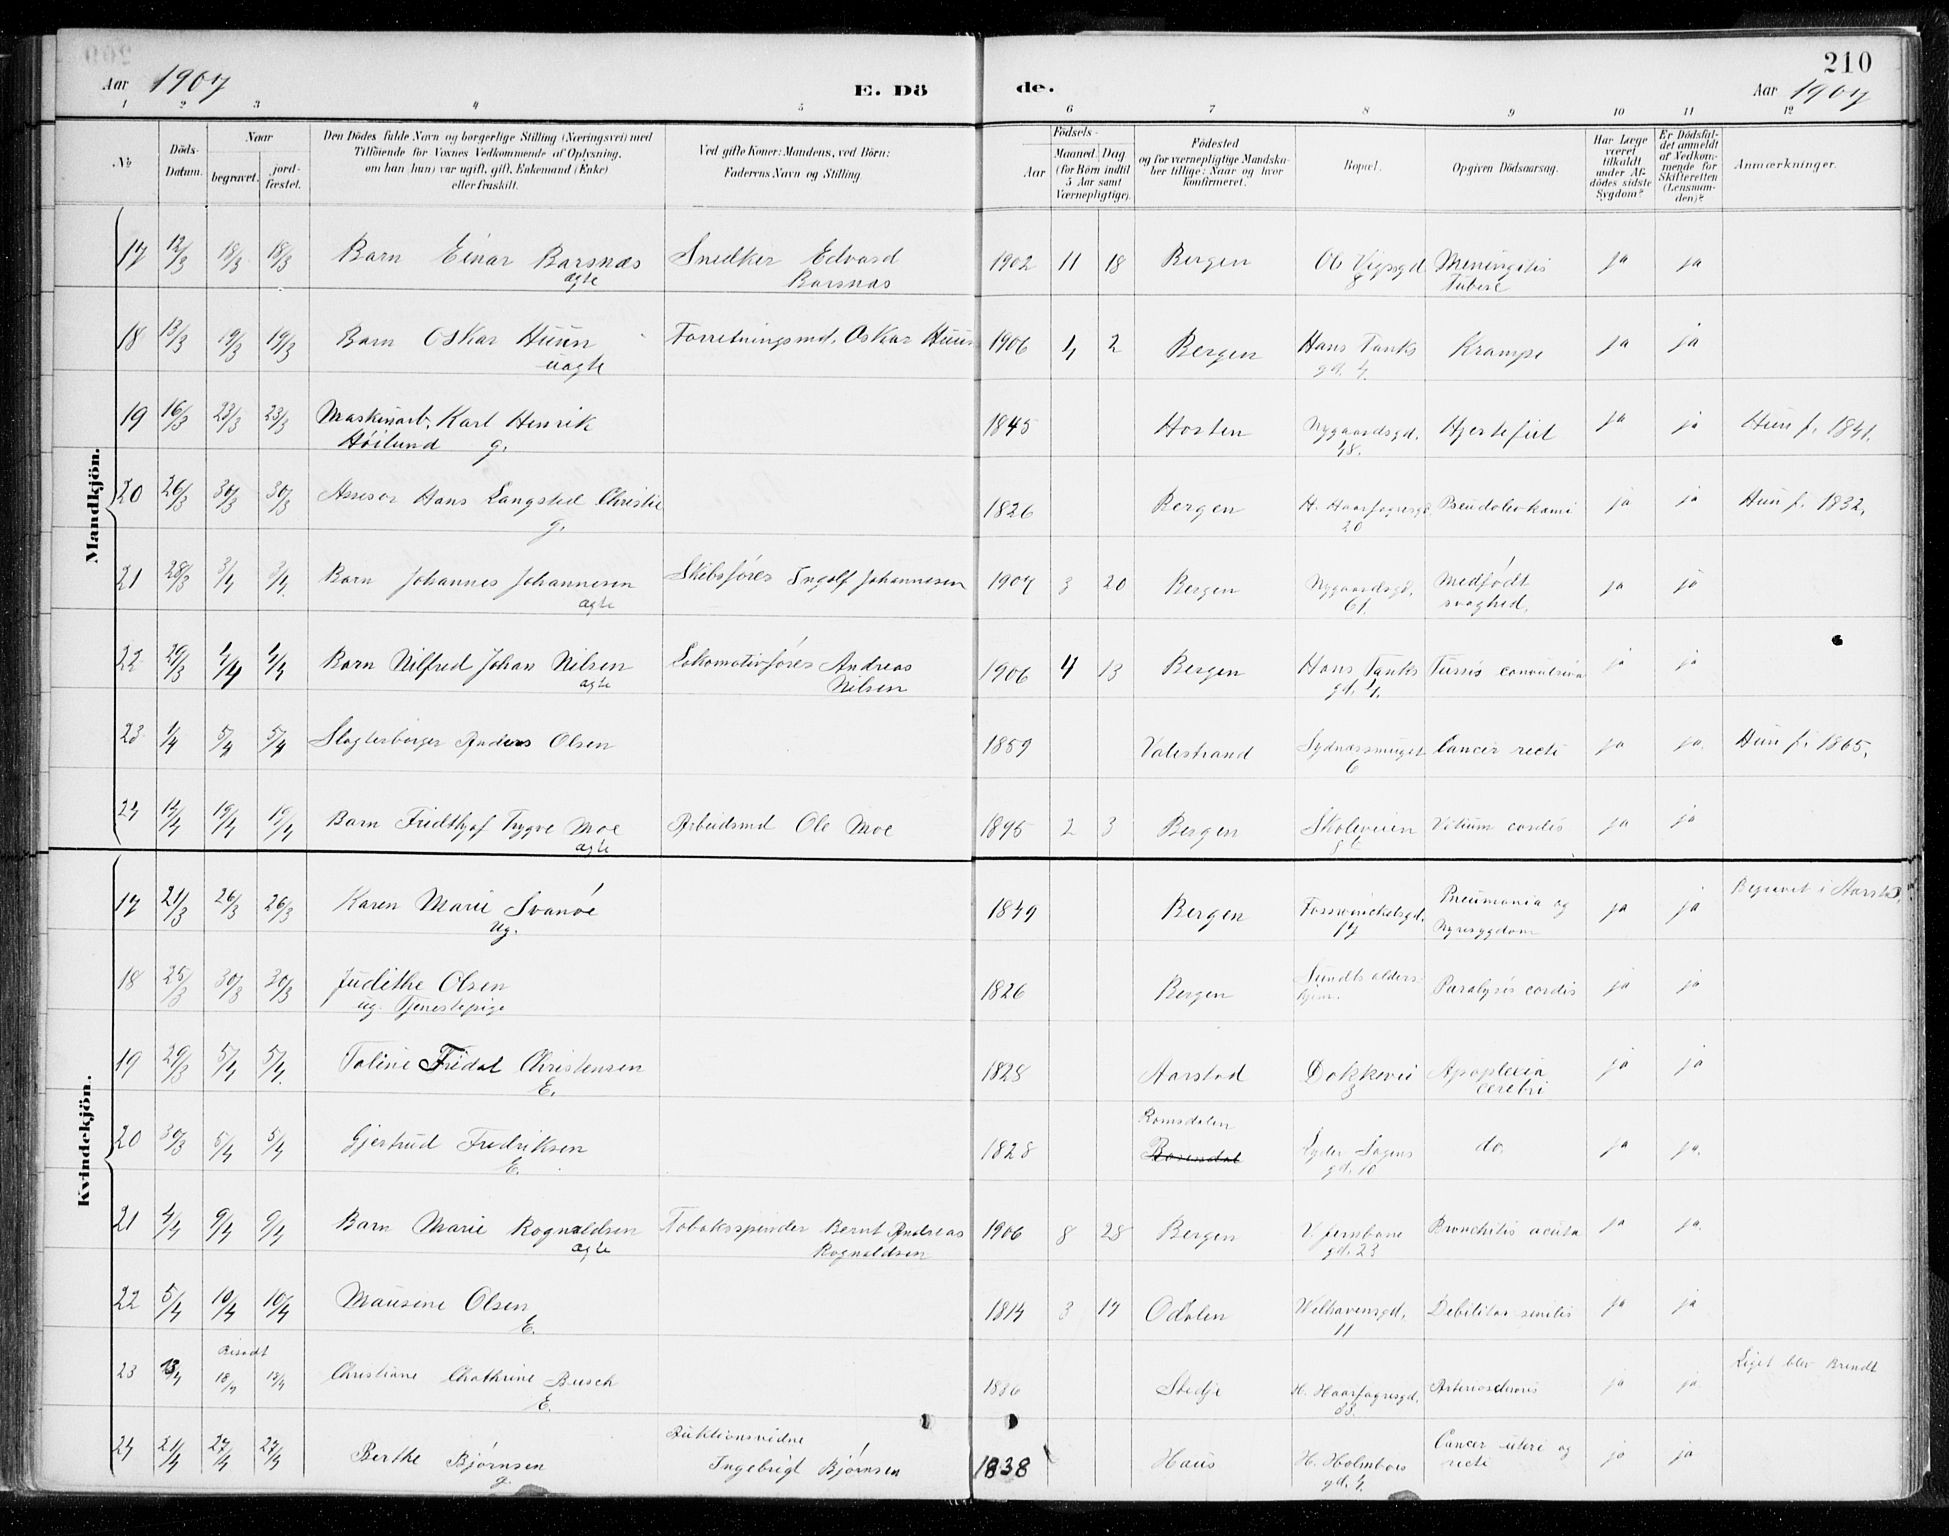 210
Aar 1907 E. Dö de. Aar 1907
1 2 3 4 5 6 7 8 9 10 11 12
№
Döds-Datum.
Naar begravet. jord-fæstet.
Den Dödes fulde Navn og borgerlige Stilling (Næringsvei) med
Tilföiende for Voxnes Vedkommende af Oplysning,
om han (hun) var ugift, gift, Enkemand (Enke)
eller fraskilt.
Ved gifte Koner: Mandens, ved Börn:
Faderens Navn og Stilling
Födsels-
Aar Maaned. Dag
(for Börn indtil
5 Aar samt
Værnepligtige).
Födested
og for værnepligtige Mandska-
ber tillige: Naar og hvor
konfirmeret.
Bopæl.
Opgiven Dödsaarsag.
Har Læge
været
tilkaldt
under Af-
dödes sidste
Sygdom?
Er Dödsfal-
det anmeldt
af Vedkom-
mende for
Skifteretten
(Lensman-
den)?
Anmærkninger.
Mandkjön.
17 12/3 18/3 18/3 Barn Einar Barsnæs Snedker Edvard 1902 11 18 Bergen Ob Vigsgd Meningitis ja ja
ægte Barsnæs 8 tuberc
18 13/3 19/3 19/3 Barn Oskar Huun Forretningsmd. Oskar Huun 1906 1 2 Bergen Hans Tanks Krampe ja ja
uægte gd. 4
19 16/3 23/3 23/3 Maskinarb. Karl Henrik 1845 Horten Nygaardsgd. Hjertefeil ja ja Hun f. 1841.
Höilund g. 48.
20 26/3 30/3 30/3 Assesor Hans Langsted Christie 1826 Bergen H. Haarfagresgd. ja ja Hun f. 1832.
g. 20
21 28/3 3/4 3/4 Barn Johannes Johannesen Skibsfører Ingolf Johannesen 1907 3 20 Bergen Nygaardsgd. Medfødt ja ja
ægte 61. svaghed.
22 29/3 4/4 4/4 Barn Nilfred Johan Nilsen Lokomotivfører Andreas 1906 4 13 Bergen Hans Tanks Tussis convulsiva ja ja
ægte Nilsen gd. 4.
23 1/4 5/4 5/4 Slagterborger Anders Olsen 1859 Valestrand Sydnæssmuget Cancer recti ja ja. Hun f. 1865.
6
24 14/4 19/4 19/4 Barn Fridthjof Trygve Moe Arbeidsmd Ole Moe 1895 2 3 Bergen Skoleveien Vitium cordis ja ja
ægte
Kvindekjön.
17 21/3 26/3 26/3 Karen Marie Svanøe 1849 Bergen Fosswinckelsgd. Pneumonia og ja ja Begravet i Aarstad.
ug. 17 Nyresygdom
18 25/3 30/3 30/3 Judithe Olsen 1826 Bergen Sundts alders- Paralysis cordis ja ja
ug. Tjenestepige hjem.
19 29/3 5/4 5/4 Taline Fridal Christensen 1828 Aarstad Dokkevei Apoplexia ja ja
E. 3 cerebri
20 30/3 5/4 5/4 Gjertrud Fredriksen 1828 Romsdalen Lyder Sagens do. ja ja.
E. gd. 10
21 4/4 9/4 9/4 Barn Marie Rognaldsen Tobaksspinder Bernt Andreas 1906 8 28 Bergen V. Jernbane Bronchitis acuta ja ja.
ægte Rognaldsen gd. 23
22 5/4 10/4 10/4 Mausine Olsen 1814 3 17 Odalen Welhavensgd. Debilitas senilis ja ja
E. 11
Bisadt
23 13/4 18/4 18/4 Christiane Chathrine Busch 1836 Stedje H. Haarfagresgd. Arteriosclerosis ja ja. Liget blev Brendt
E. 33.
24 21/4 27/4 27/4 Berthe Bjørnsen Auktionsvidne 1838 Haus H. Holmboes Cancer uteri og ja ja
g. Ingebrigt Bjørnsen gd. 4. recti